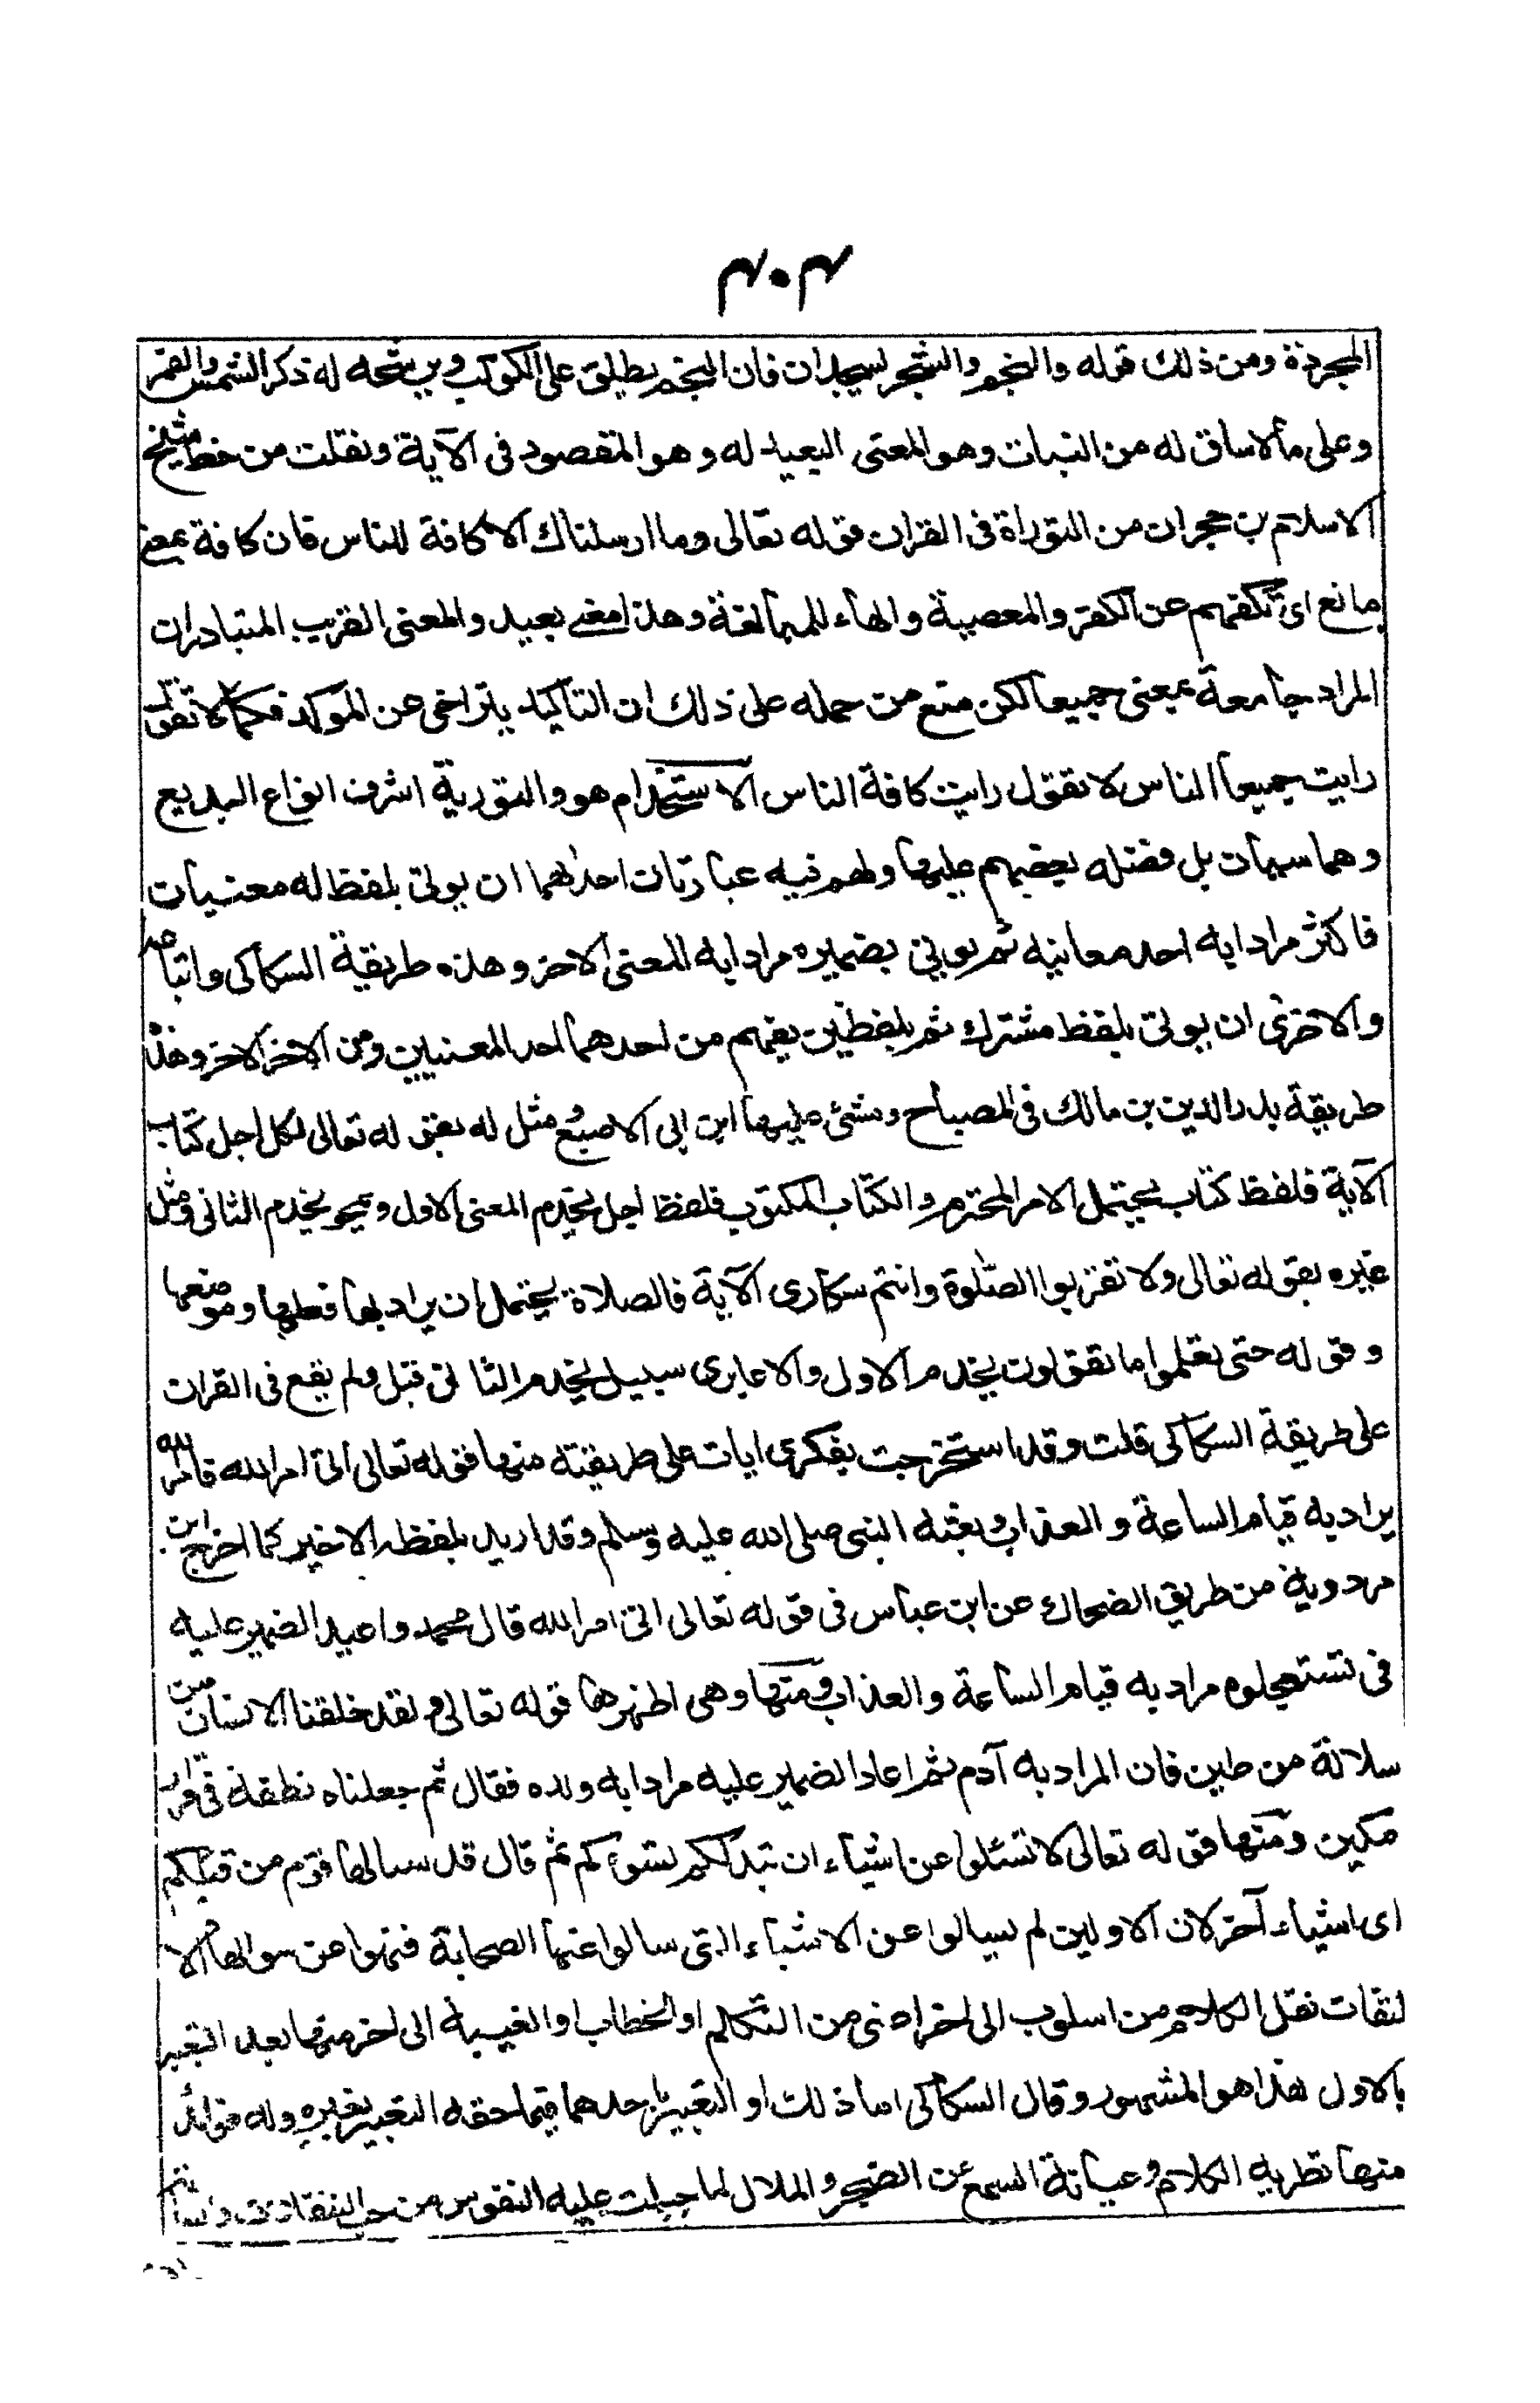 ٣٠٣
المجردة ومن ذلك قوله والنجم والشجر يسجدان فان النجم يطلق على الكوكب ويرشحه له ذكر الشمس والقمر
وعلى مالاساق له من النبات وهو المعنى البعيد له وهو المقصود فى الآية ونقلت من خط شيخ
الاسلام بن حجر ان من التوراة فى القران قوله تعالى وما ارسلناك الا كافة للناس فان كافة بمعنى
مانع اى تكفهم عن الكفر والمعصية والهاء للمبالغة وهذا معنى بعيد والمعنى القريب المتبادر ان
المراد جامعة بمعنى جميعا لكن منع من حمله على ذلك ان التاكيد يتراخى عن الموكد فكما لا تقول
رايت جميعا الناس لا تقول رايت كافة الناس الاستخدام هو والتورية اشرف انواع البديع
وهما سيان بل فضله بعضهم عليها ولهم فيه عبارتان احدٰهما ان يوتى بلفظ له معنيان
فاكثر مرادا به احد معانيه ثم يوتى بضميره مرادا به المعنى الاخر وهذه طريقة السكاكى واتباعه
والاخرى ان يوتى بلفظ مشترك ثم بلفظين يفهم من احدهما احد المعنيين ومن الاخر الاخر وهذه
طريقة بدر الدين بن مالك فى المصباح ومشى عليها ابن ابى الاصبع ومثل له بقوله تعالى لكل اجل كتاب
الآية فلفظ كتاب يحتمل الامر المحتوم والكتاب المكتوب فلفظ اجل يخدم المعنى الاول ويمحو يخدم الثانى ومثل
غيره بقوله تعالى ولا تقربوا الصلوة وانتم سكارى الآية فالصلاة يحتمل ان يراد بها فعلها وموضعها
وقوله حتى تعلموا ما تقولون يخدم الاول والا عابرى سبيل يخدم الثانى قيل ولم يقع فى القران
على طريقة السكاكى قلت وقد استخرجت بفكرى ايات على طريقته منها قوله تعالى اتى امر الله فامر الله
يراد به قيام الساعة والعذاب وبعثه النبى صلى الله عليه وسلم وقد اريد بلفظه الاخير كما اخرج ابن
مردوية من طريق الضحاك عن ابن عباس فى قوله تعالى اتى امر الله قال محمد واعيد الضمير عليه
فى تستعجلوه مراد به قيام الساعة والعذاب ومنها وهى اظهرها قوله تعالى ولقد خلقنا الانسان من
سلالة من طين فان المراد به آدم ثم اعاد الضمير عليه مرادا به ولده فقال ثم جعلناه نطفة فى قرار
مكين ومنها قوله تعالى لا تسئلوا عن اشياء ان تبد لكم تسؤكم ثم قال قد سالها قوم من قبلكم
اى اشياء آخر لان الاولين لم يسالوا عن الاشياء التى سالوا عنها الصحابة فنهوا عن سوالها الا
لتفات نقل الكلام من اسلوب الى اخر اعنى من التكلم او الخطاب او الغيبة الى اخر منها بعد التعبير
بالاول هذا هو المشهور وقال السكاكى اما ذلك او التعبير باحدهما فيما حقه التعبير بغيره وله فوائد
منها تطرية الكلام وصيانة السمع عن الضجر والملال لما جبلت عليه النفوس من حب التنقلات